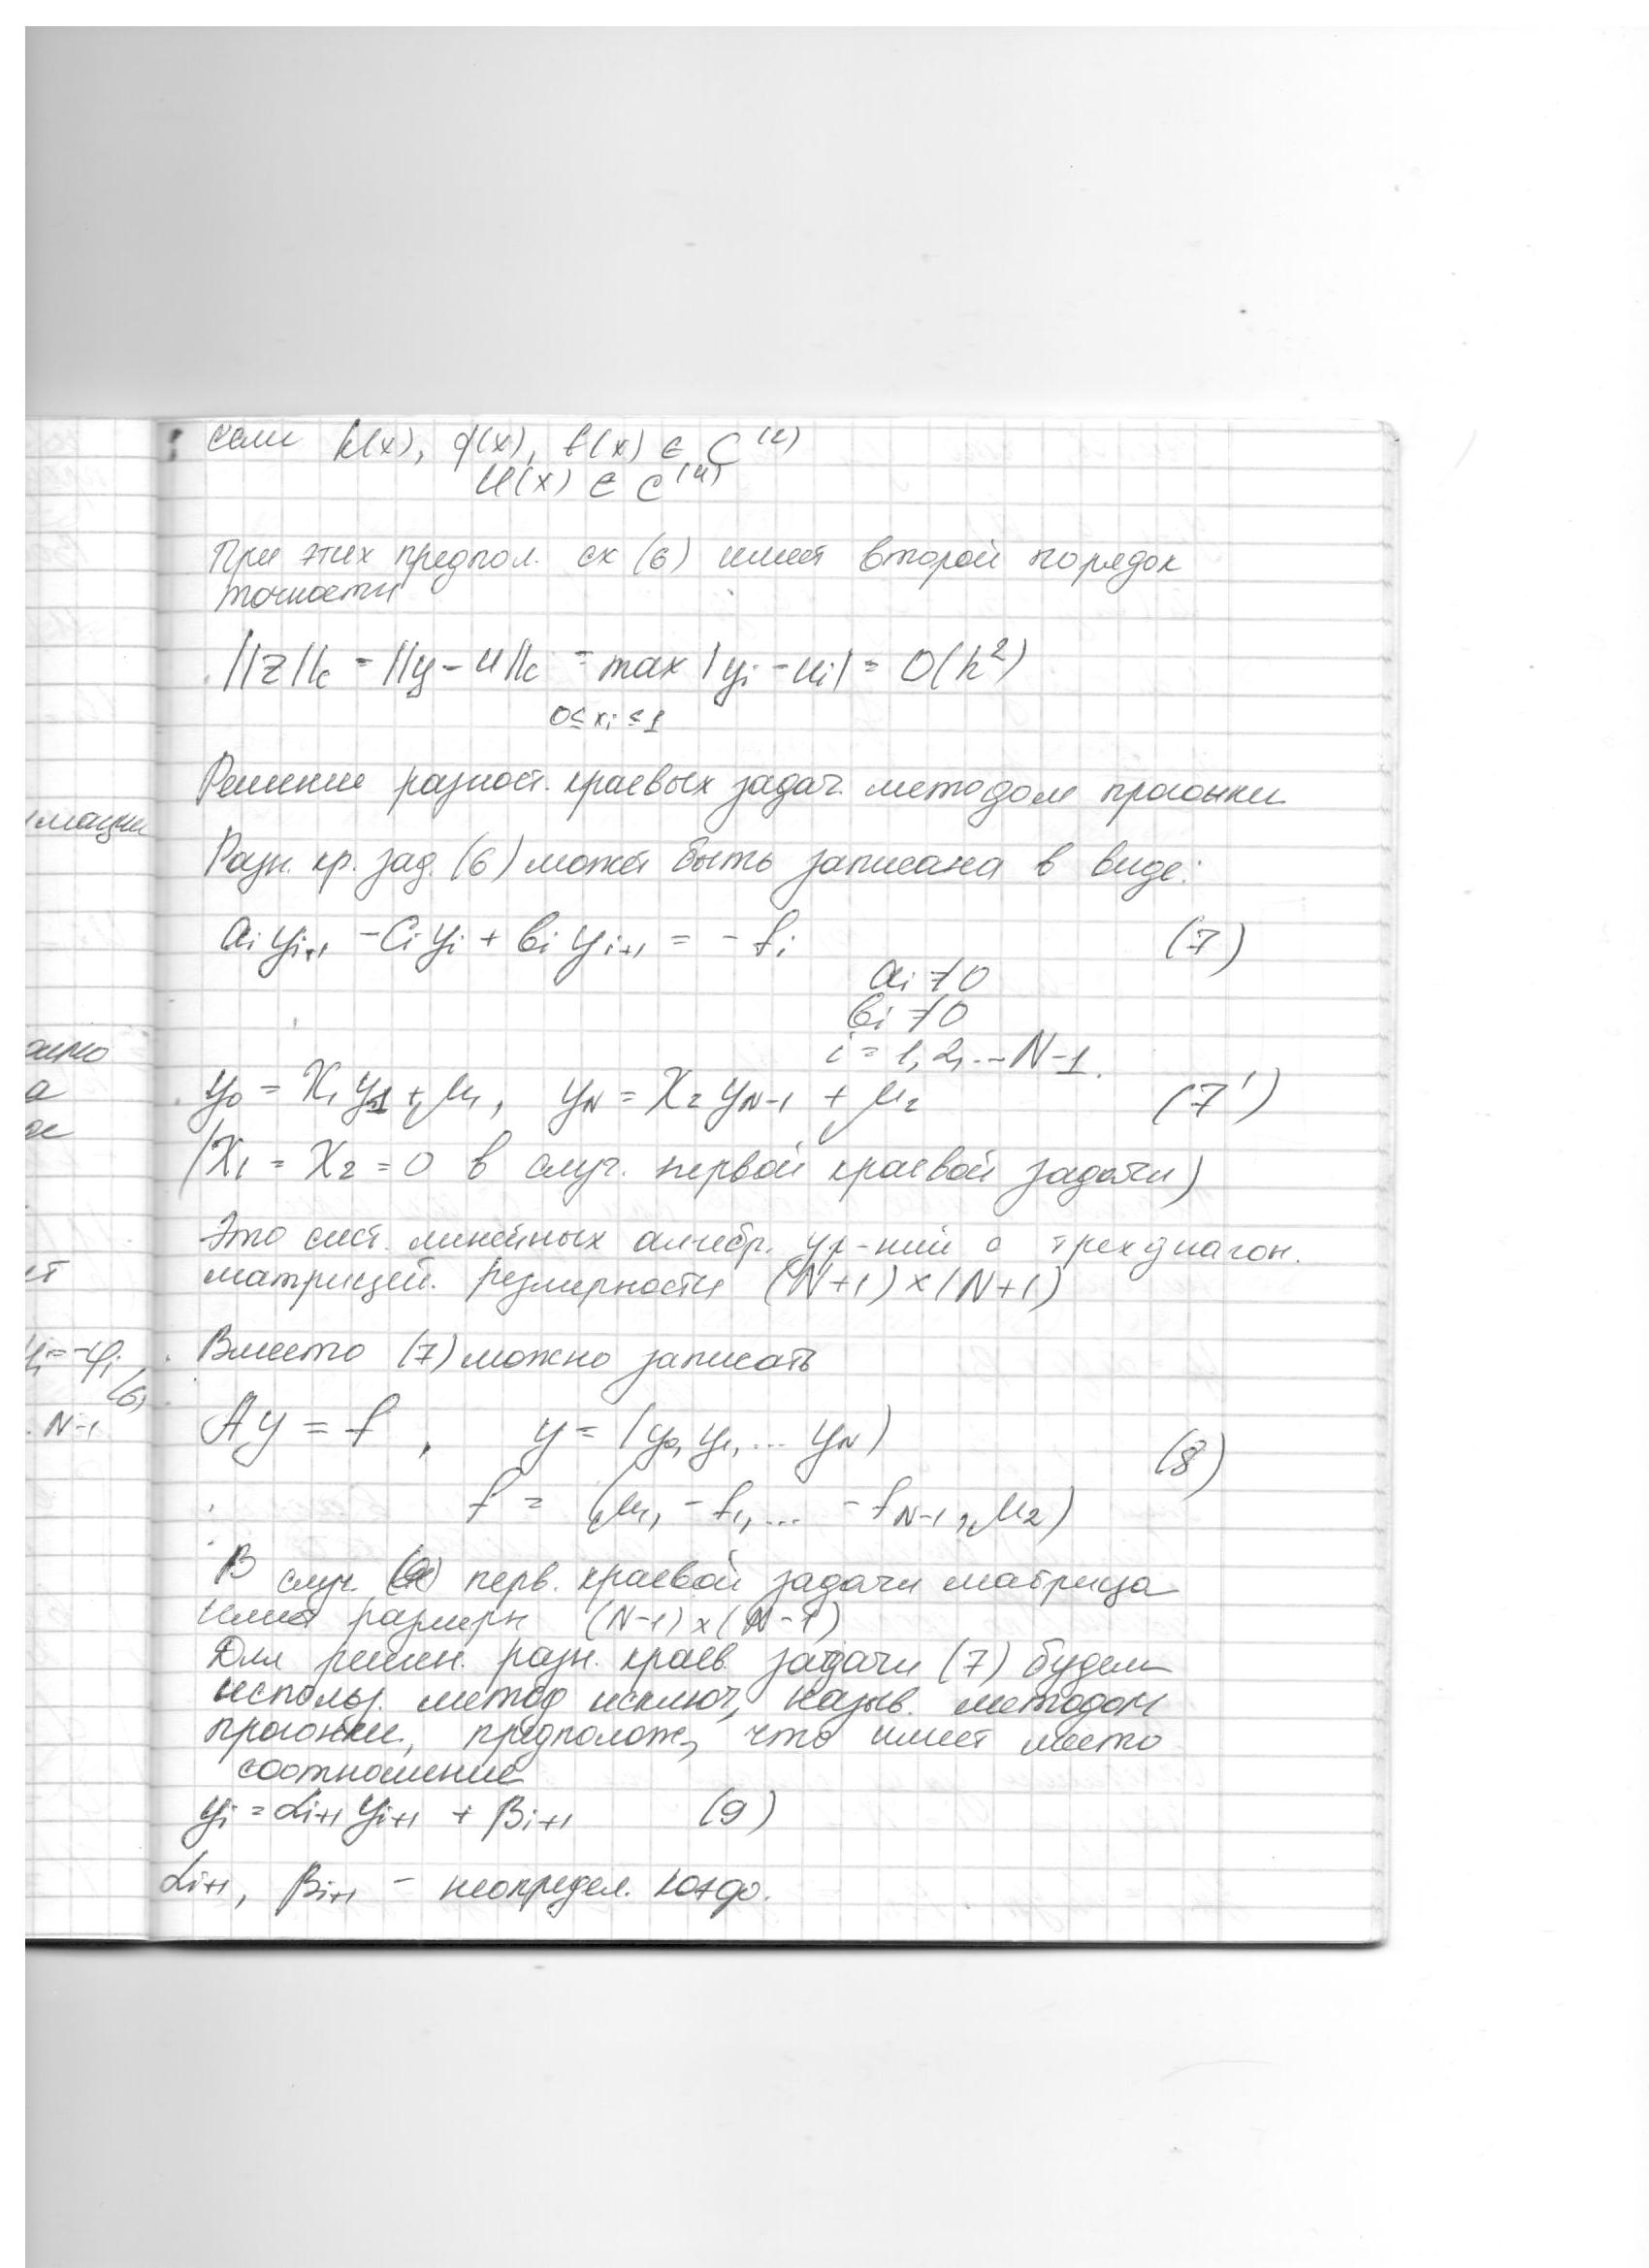 если k(x), q(x), f(x) ∈ C^(2)
u(x) ∈ C^(4)
При этих предпол. сх (6) имеет второй порядок
точности
||z||c = ||y - u||c = max |yi - ui| = O(h²)
0 ≤ xi ≤ 1
Решение разност. краевых задач методом прогонки
мации
Разн. кр. зад. (6) может быть записана в виде:
ai yi+1 - ci yi + bi yi+1 = - fi (7)
ai ≠ 0
bi ≠ 0
i = 1, 2, ... N-1.
y0 = X1 y1 + μ1, yN = X2 yN-1 + μ2 (7')
а
(X1 = X2 = 0 в случ. первой краевой задачи)
Это сист. линейных алгебр. ур-ний с трехдиагон.
матрицей. размерности (N+1) x (N+1)
Вместо (7) можно записать
= -φi
(6)
N-1
Ay = f, y = (y0, y1, ... yN) (8)
f = (μ1, -f1, ... -fN-1, μ2)
В случ. перв. краевой задачи матрица
имеет размерн (N-1) x (N-1)
Для решен. разн. краев. задачи (7) будем
использ. метод исключ, назыв. методом
прогонки, предполож, что имеет место
соотношение
yi = αi+1 yi+1 + βi+1 (9)
αi+1, βi+1 - неопредел. коэф.